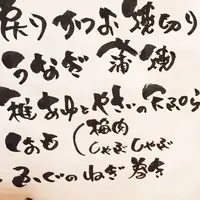 戻りかつお 焼切り
うなぎ 蒲焼
稚あゆとやさいの天ぷら
はも(梅肉 しゃぶしゃぶ
ふぐのねぎ巻き